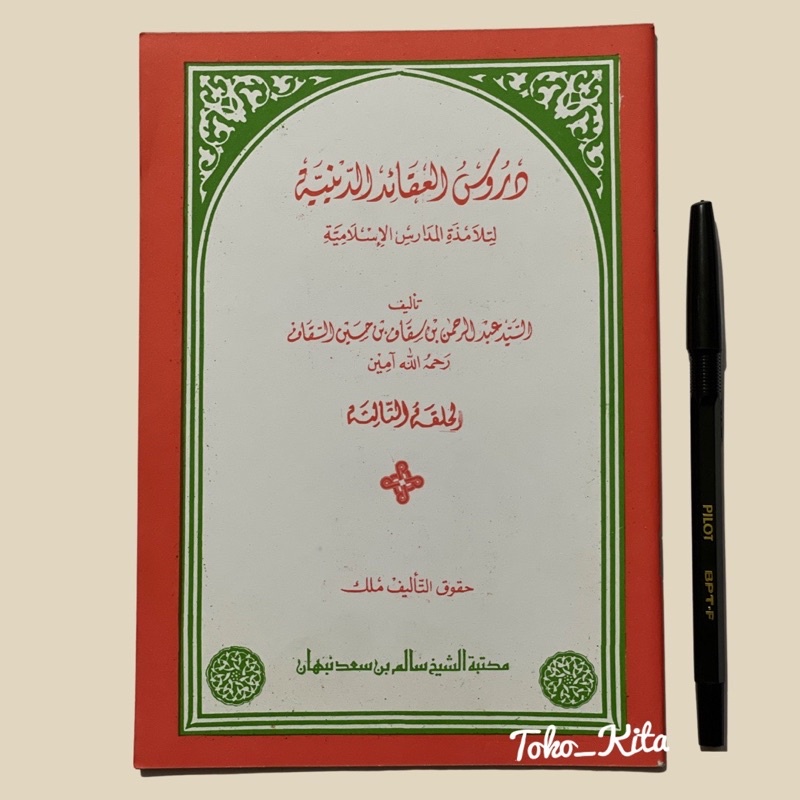 دُرُوسُ العَقَائِدِ الدِّينِيَّةِ
لِتَلَامِذَةِ المَدَارِسِ الإِسْلَامِيَّةِ
تأليف
السَّيِّد عَبْد الرحمٰن بن سقاف بن حسين السقاف
رَحِمَهُ اللّٰه آمِين
الحلقة الثالثة
حقوق التأليف ملك
مكتبة الشيخ سالم بن سعد نبهان
PILOT BPT-F
Toko_Kita